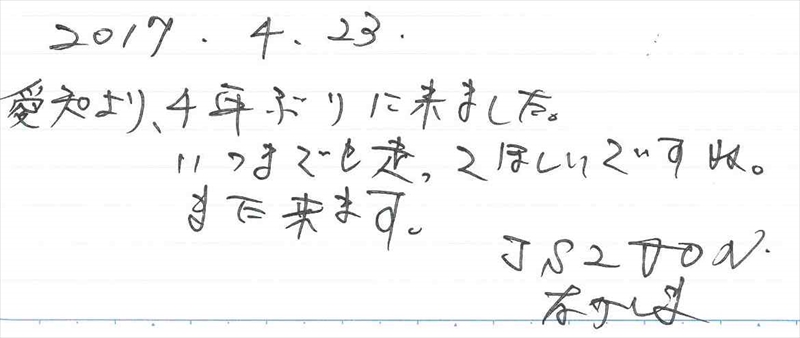 2017. 4. 23.
愛知より、4年ぶりに来ました。
いつまでも走ってほしいですね。
また来ます。
JS2TON.
ながしま